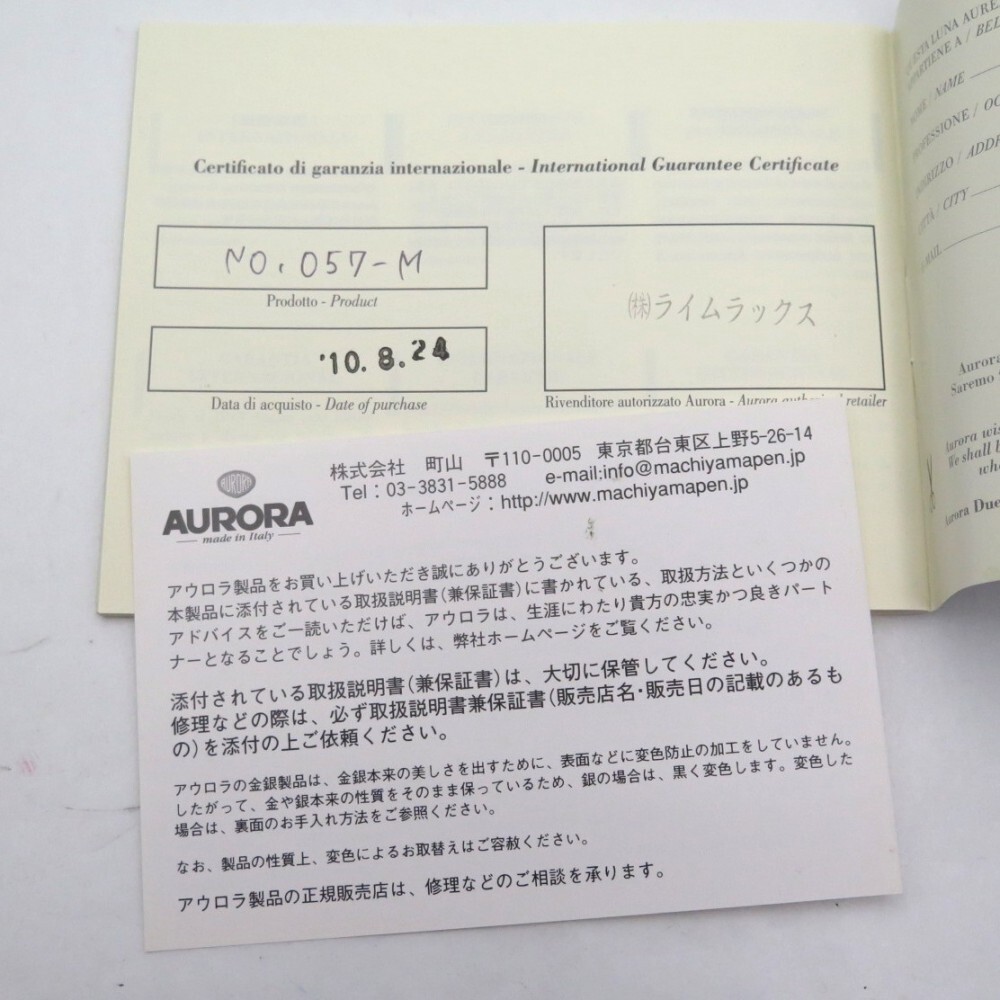 Certificato di garanzia internazionale - International Guarantee Certificate
NO. 057-M
Prodotto - Product
'10. 8. 24
Data di acquisto - Date of purchase
㈱ライムラックス
Rivenditore autorizzato Aurora - Aurora authorized retailer
QUESTA LUNA AURE
APPARTIENE A / BEL
NOME / NAME
PROFESSIONE / OC
INDIRIZZO / ADDR
CITTÀ / CITY
E-MAIL
Aurora
Saremo
Aurora wis
We shall b
wha
Aurora Due
AURORA
AURORA
made in Italy
株式会社 町山 〒110-0005 東京都台東区上野5-26-14
Tel：03-3831-5888 e-mail:info@machiyamapen.jp
ホームページ：http://www.machiyamapen.jp
アウロラ製品をお買い上げいただき誠にありがとうございます。
本製品に添付されている取扱説明書(兼保証書)に書かれている、取扱方法といくつかの
アドバイスをご一読いただけば、アウロラは、生涯にわたり貴方の忠実かつ良きパート
ナーとなることでしょう。詳しくは、弊社ホームページをご覧ください。
添付されている取扱説明書(兼保証書)は、大切に保管してください。
修理などの際は、必ず取扱説明書兼保証書(販売店名・販売日の記載のあるも
の)を添付の上ご依頼ください。
アウロラの金銀製品は、金銀本来の美しさを出すために、表面などに変色防止の加工をしていません。
したがって、金や銀本来の性質をそのまま保っているため、銀の場合は、黒く変色します。変色した
場合は、裏面のお手入れ方法をご参照ください。
なお、製品の性質上、変色によるお取替えはご容赦ください。
アウロラ製品の正規販売店は、修理などのご相談を承ります。